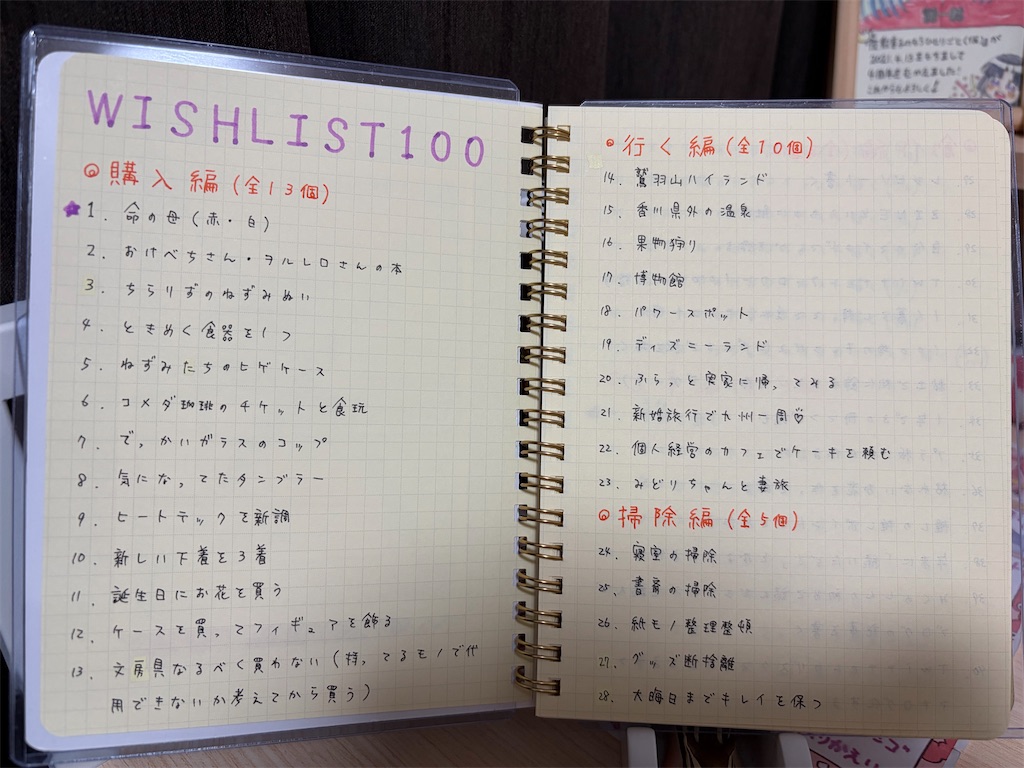 WISHLIST100
◎購入編(全13個)
★1. 命の母(赤・白)
2. おけべちさん・ヲルレロさんの本
3. ちらりずのねずみぬい
4. ときめく食器を1つ
5. ねずみたちのヒゲケース
6. コメダ珈琲のチケットと食玩
7. でっかいガラスのコップ
8. 気になってたタンブラー
9. ヒートテックを新調
10. 新しい下着を3着
11. 誕生日にお花を買う
12. ケースを買ってフィギュアを飾る
13. 文房具なるべく買わない(持ってるモノで代
用できないか考えてから買う)
◎行く編(全10個)
14. 鷲羽山ハイランド
15. 香川県外の温泉
16. 果物狩り
17. 博物館
18. パワースポット
19. ディズニーランド
20. ふらっと実家に帰ってみる
21. 新婚旅行で九州一周♡
22. 個人経営のカフェでケーキを頼む
23. みどりちゃんと妻旅
◎掃除編(全5個)
24. 寝室の掃除
25. 書斎の掃除
26. 紙モノ整理整頓
27. グッズ断捨離
28. 大晦日までキレイを保つ